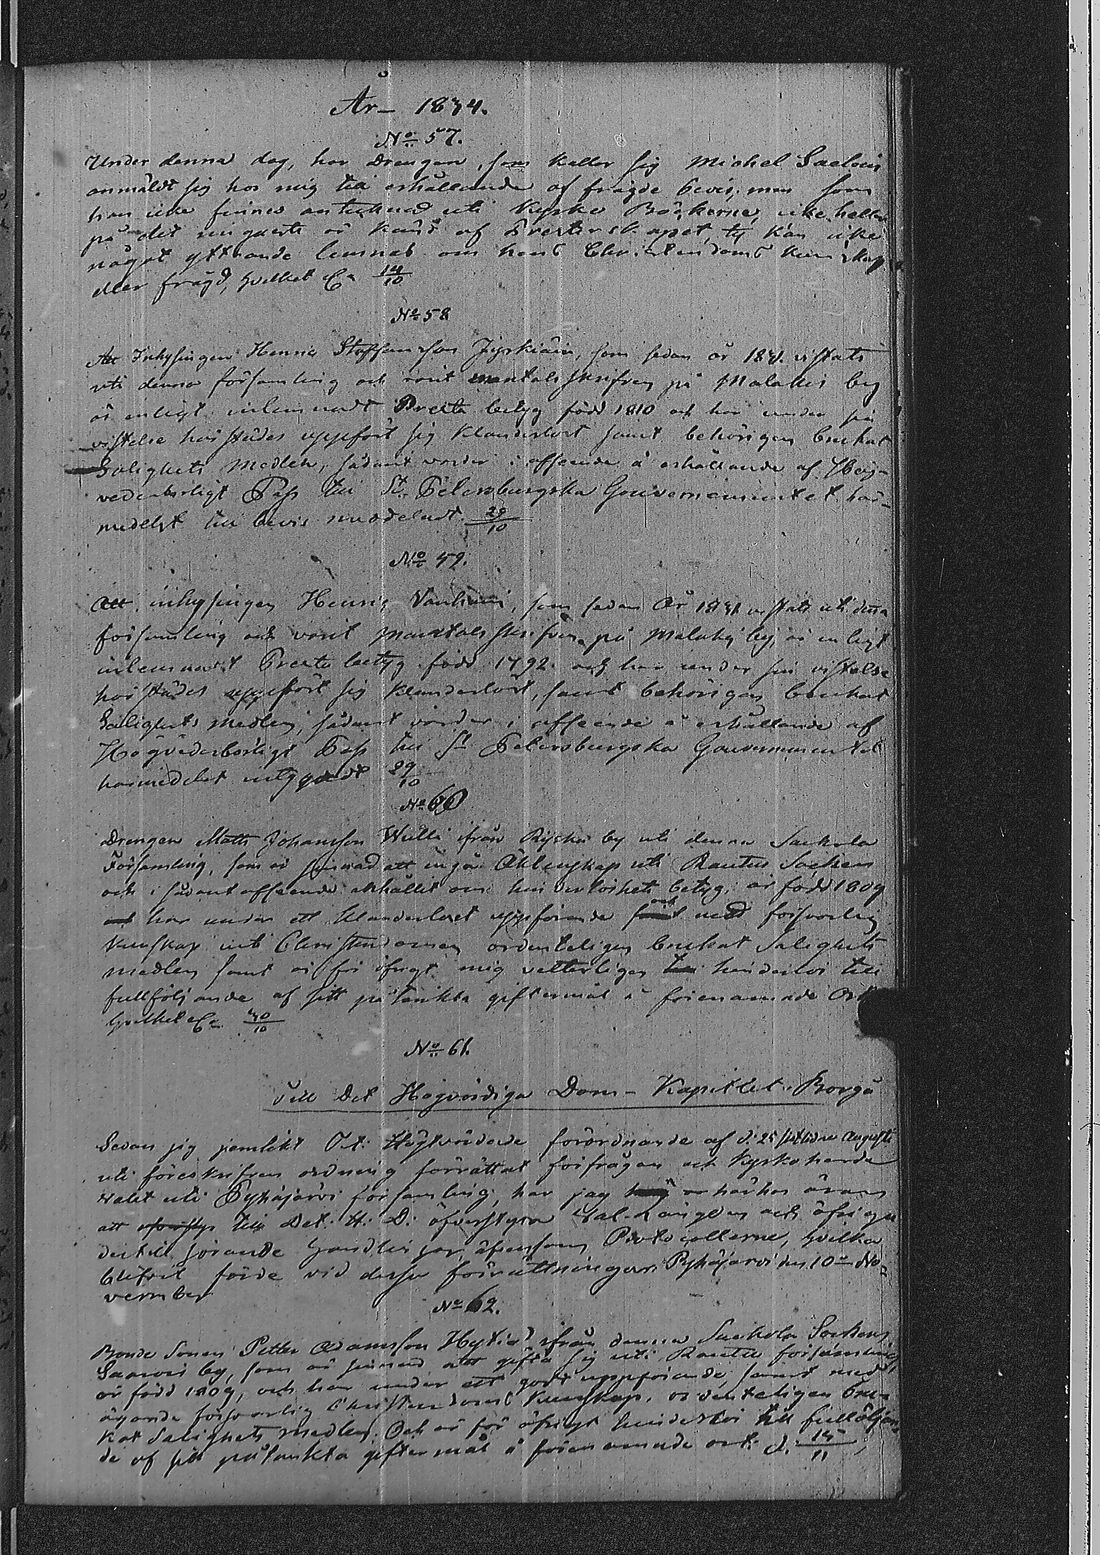 År 1834.
No 57.
Under denna dag, har Drengen, som kallar sig Michel
anmäldt sig hos mig till erhållande af frägde bevis; men som
han icke finnes antecknad uti Kyrko Böckerne, icke heller
på det ringaste är känd af Presterskapet ty kan icke
något yttrande lemnas om hans Christendoms kunskap
eller frägd, hvilket &c 14/10
No 58
Att Inhysingen Henric Staffansson Jyskiäin, som sedan år 1831 vistats
uti denna församling och varit mantalsskrifven på Malakis by
är enligt inlemnadt Preste betyg född 1810 och har under sin
vistelse härstädes uppfört sig klanderlöst samt behörigen brukat
Salighets Medlen, sådant varder i afseende å erhållande af Hög-
vederbörligt Pass till St. Petersburgska Gouvernementet här-
medelst till bevis meddeladt 29/10
No 59.
Att inhysingen Henric, som sedan År 1831 vistats uti denna
församling och varit mantalsskrifven på Malakis by, är enligt
inlemnadt Preste betyg född 1792 och har under sin vistelse
härstädes uppfört sig klanderlöst, samt behörigen brukat
Salighets Medlen, sådant varder i afseende å erhållande af
Högvederbörligt Pass till St Petersburgska Gouvernementet
härmedelst intygadt 29/10
No 60
Drengen Matts Johansson ifrån by uti denna Sackola
Församling, som är sinnad att ingå Äktenskap uti Rautus Socken
och i sådant afseende anhållit om hinderlöshets betyg; är född 1809
har under ett klanderlöst uppförande och med försvarlig
kunskap uti Christendomen ordenteligen brukat Salighets
medlen samt är för öfrigt mig vetterligen hinderlös till
fullföljande af sitt påtänkta giftermål i förenämnde Ort
hvilket &c 30/10
No 61.
Till Det Högvördiga Dom-Kapitlet i Borgå
Sedan jag jemlikt Dess Högtvördade förordnande af d. 25 sistledne Augusti
uti föreskrifven ordning förrättat förfrågan och Kyrkoherde
valet uti Pyhäjärvi församling; har jag härhos äran
att till Det H. D. öfverstyra Val-Längden och öfriga
dertill hörande handlingar äfvensom Protocollerne, hvilka
blifvit förde vid dessa förrättningar. Pyhäjärvi den 10 No-
vember
No 62.
Bonde Sonen Petter Adamsson ifrån denna Sackola Sockens
Saarois by, som är sinnad att gifta sig uti Rautus församling
är född 1809, och har under ett godt uppförande, samt med
ägande försvarlig Christendoms Kunskap, ordenteligen bru-
kat Salighets medlen. Och är för öfrigt hinderlös till fullföljan-
de af sitt påtänkta giftermål å förenämnde ort. d. 15/11